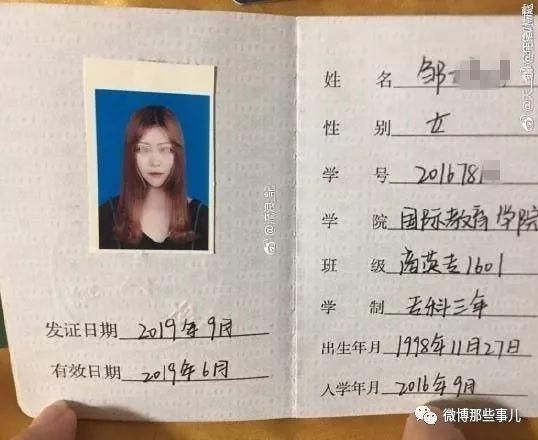 发证日期 2019年9月
有效日期 2019年6月
姓 名 邹
性 别 女
学 号 201678
学 院 国际教育学院
班 级 商英专1601
学 制 专科三年
出生年月 1998年11月27日
入学年月 2016年9月
微博那些事儿